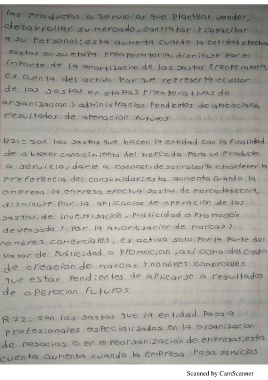 los productos o servicios que plantear vender,
desarrollar su mercado, contratar y capacitar
a su personal; esta aumenta cuando la entidad efectua
gastos en su etapa Preoperatoria, disminuye por el
importe de la amortizacion de los gastos Preoperatorios
es cuenta del activo por que representa el valor
de los gastos en etapas Preoperativas de
organizacion y administracion Pendientes de aplicacion a
resultados de operacion futuros.
R21: son los gastos que hacen la entidad con la finalidad
de obtener conocimiento del mercado Para un Producto
o servicios, darle a conocer desarrollarlo establecer la
Preferencia del consumidor: esta aumenta cuando la
empresa la empresa efectua gastos de mercadotecnia,
disminuye por la aplicacion de operacion de los
gastos de investigacion, Publicidad o Promocion
devengado y por la amortizacion de marcas y
nombres comerciales; es activo solo por la Parte del
valor de Publicidad o Promocion, asi como del costo
de creacion de marcas y nombres comerciales
que estan Pendientes de aplicarse a resultados
de operacion futuros.
R22: son los gastos que la entidad Paga a
profesionales especializados en la organizacion
de negocios o en el reorganizacion de empresas, esta
cuenta aumenta cuando la empresa Paga servicios
Scanned by CamScanner